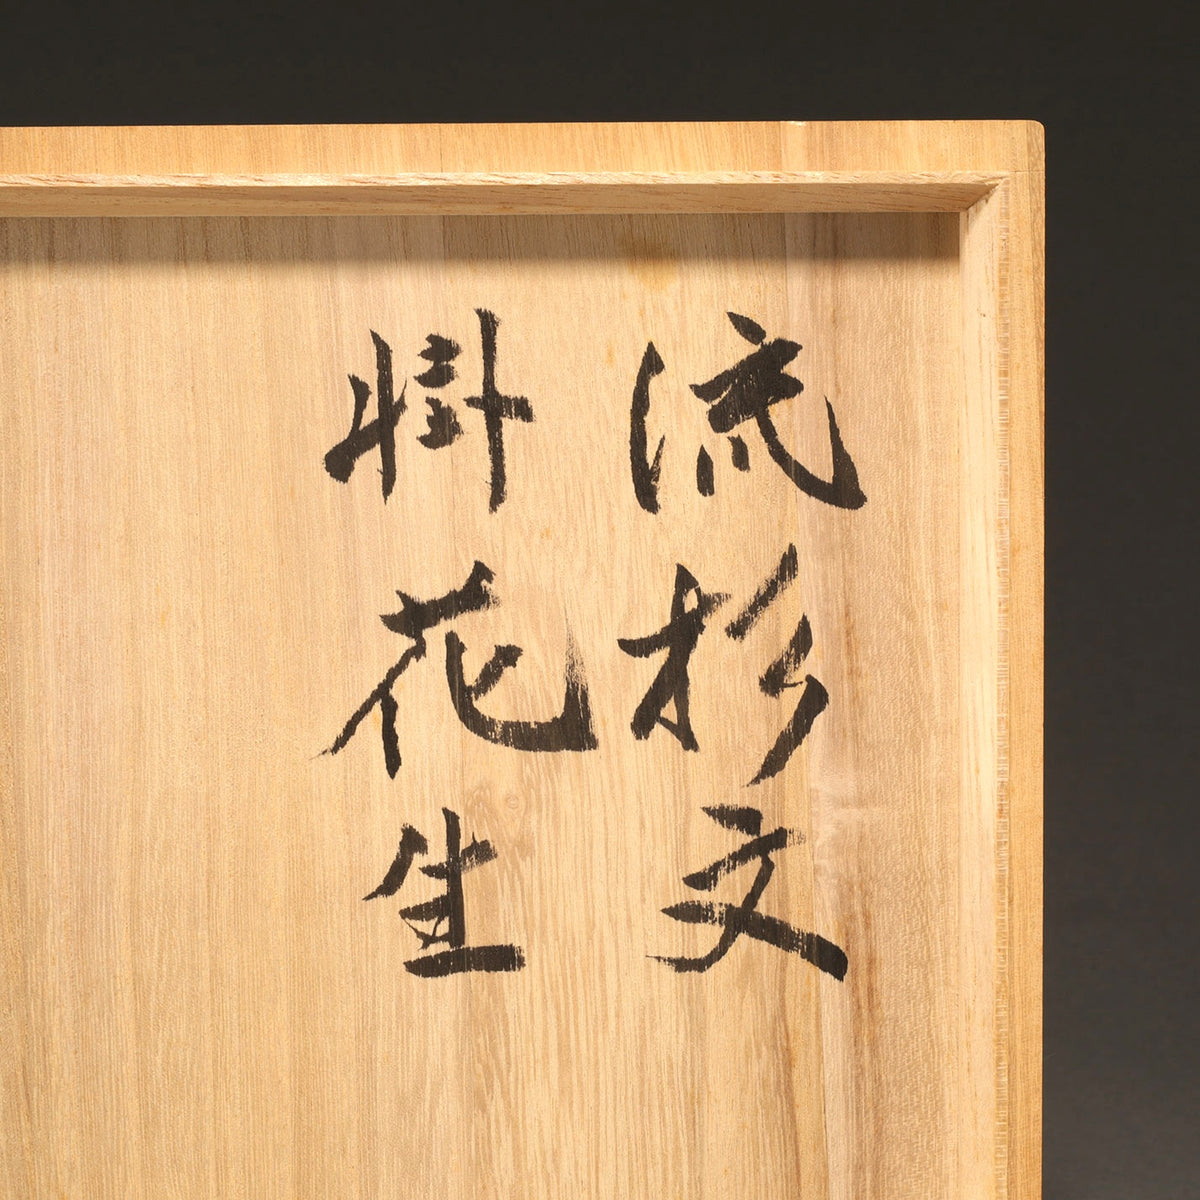 流杉文
掛花生